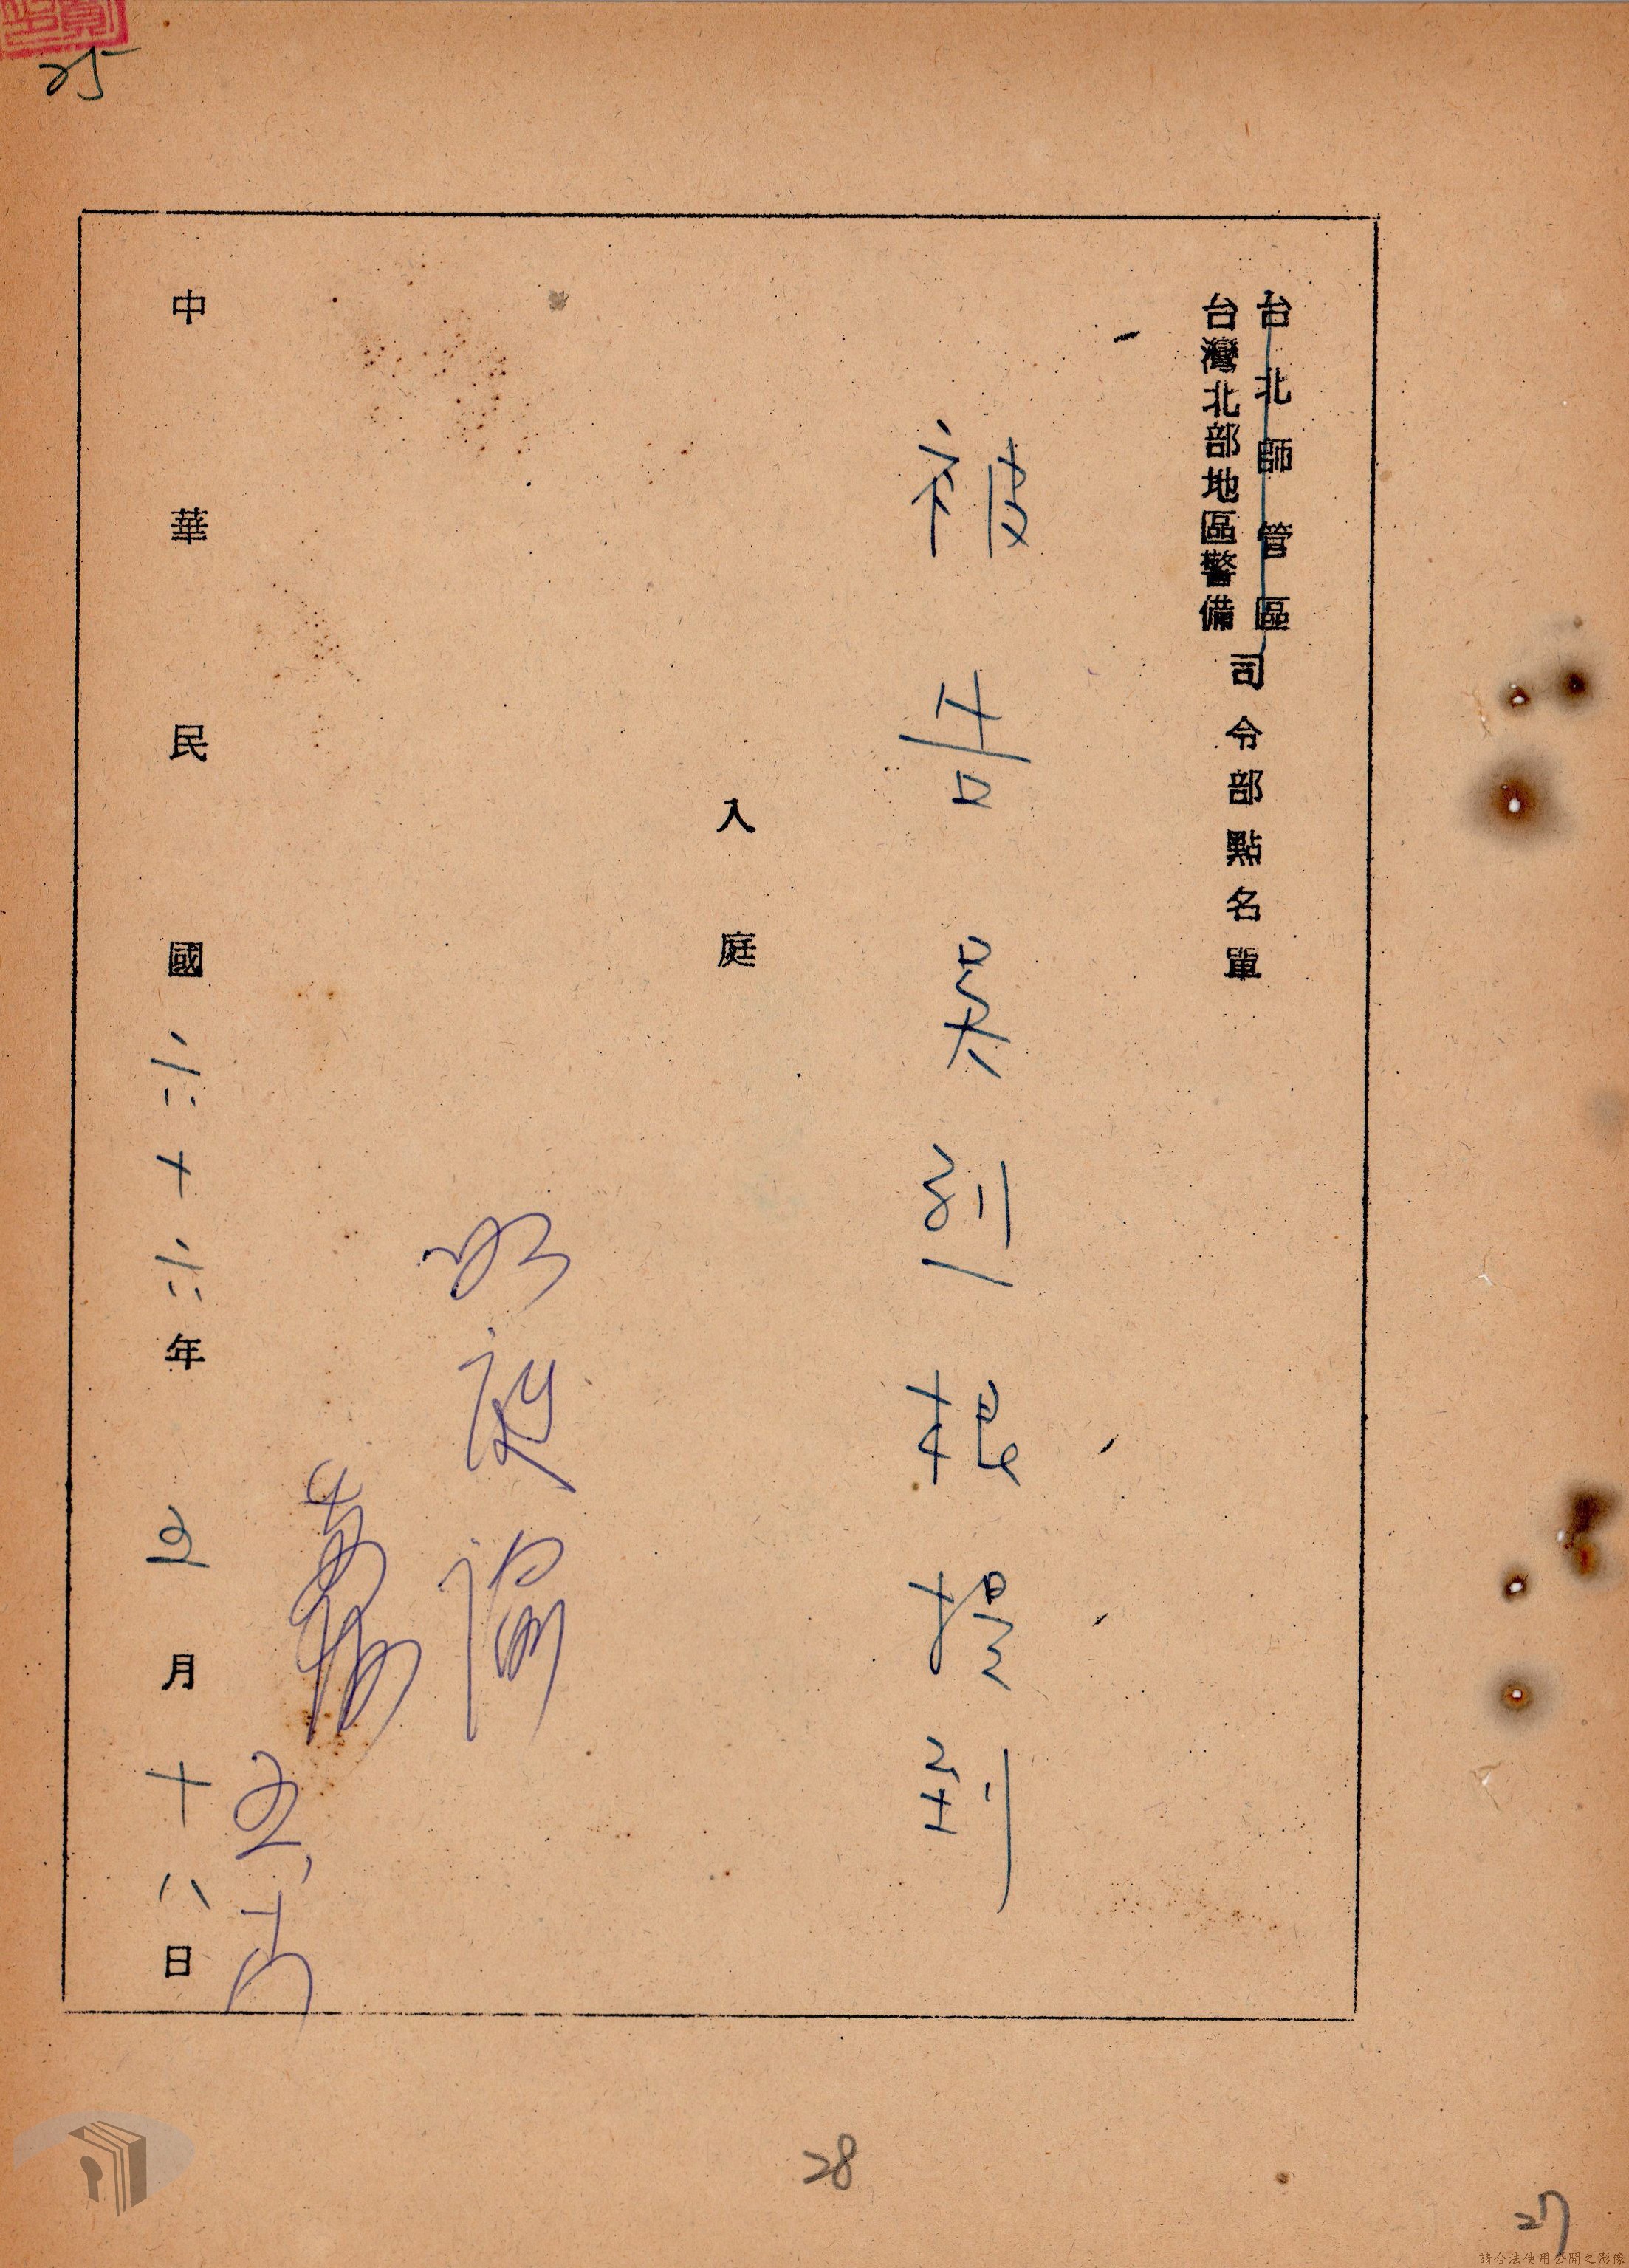 25
台北師管區
台灣北部地區警備
司令部點名單
被告吳烈根提到
入庭
中華民國六十六年五月十八日
28
27
請合法使用公開之影像